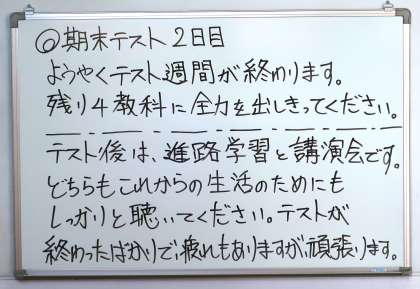 ◎期末テスト2日目
ようやくテスト週間が終わります。
残り4教科に全力を出しきってください。
テスト後は、進路学習と講演会です。
どちらもこれからの生活のためにも
しっかりと聴いてください。テストが
終わったばかりで、疲れもありますが、頑張ります。